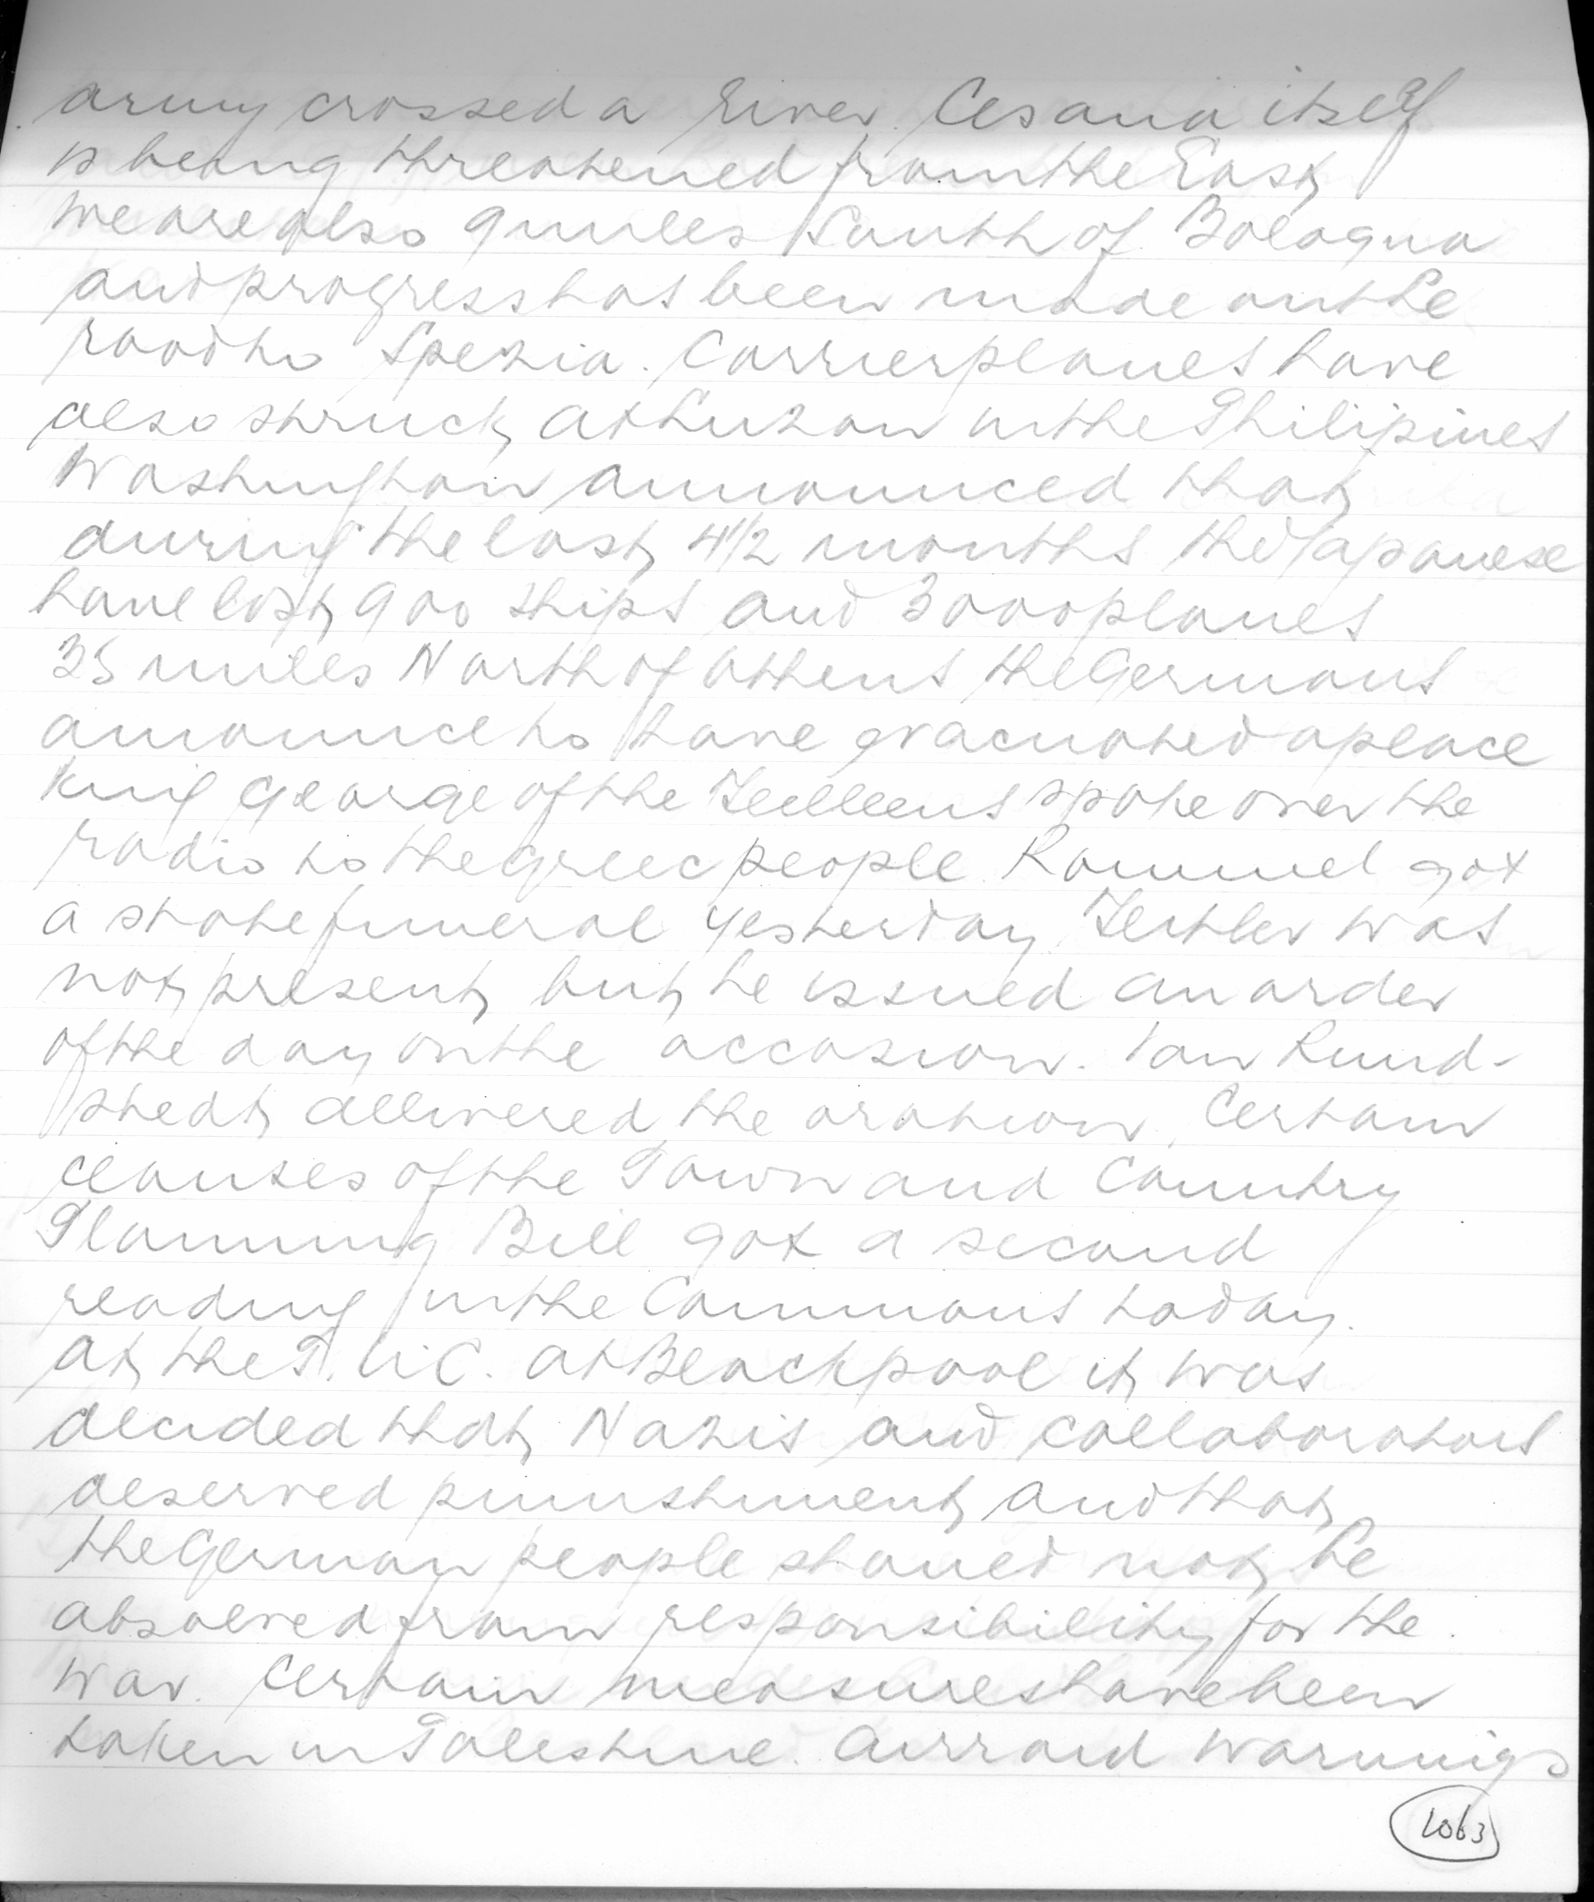 army crossed a river. Cesana itself
is being threatened from the East,
we are also 9 miles South of Bologna
and progress has been made on the
road to Spezia. Carrierplanes have
also struck at Luzon in the Philipines
Washington announced that
during the last 4 1/2 months the Japanese
have lost 900 ships and 3000 planes
35 miles North of Athens the Germans
announce to have evacuated a place
King George of the Hellens spoke over the
radio to the greec people. Rommel got
a state funeral yesterday, Hitler was
not present, but he issued an order
of the day on the occasion. Van Rund-
stedt delivered the oration. Certain
clauses of the Town and Country
Planning Bill got a second
reading in the Commons today.
At the T.U.C. at Blackpool it was
decided that Nazis and collaborators
deserved punishment and that
the German people should not be
absolved from responsibility for the
war. Certain measures have been
taken in Palestine. Airraid warnings
1063